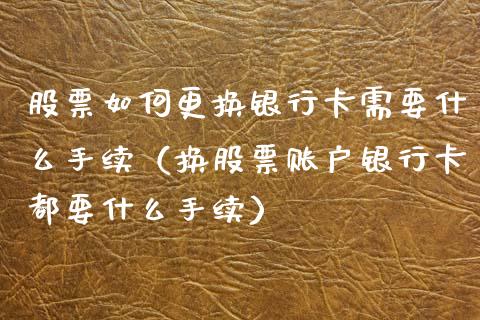 股票如何更换银行卡需要什
么手续（换股票账户银行卡
都要什么手续）